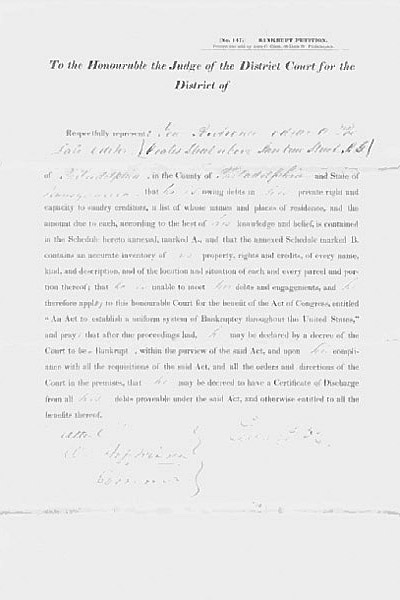 [No. 147. BANKRUPT PETITION.
To the Honourable the Judge of the District Court for the
District of
Respectfully represents
late editor { Coates Street above Street N. S. }
of Philadelphia, in the County of Philadelphia and State of
Pennsylvania that he is owing debts in his private right and
capacity to sundry creditors, a list of whose names and places of residence, and the
amount due to each, according to the best of his knowledge and belief, is contained
in the Schedule hereto annexed, marked A., and that the annexed Schedule marked B.
contains an accurate inventory of his property, rights and credits, of every name,
kind, and description, and of the location and situation of each and every parcel and por-
tion thereof; that he is unable to meet his debts and engagements, and he
therefore apply to this honourable Court for the benefit of the Act of Congress, entitled
"An Act to establish a uniform system of Bankruptcy throughout the United States,"
and pray that after due proceedings had, he may be declared by a decree of the
Court to be a Bankrupt , within the purview of the said Act, and upon his compli-
ance with all the requisitions of the said Act, and all the orders and directions of the
Court in the premises, that he may be decreed to have a Certificate of Discharge
from all his debts proveable under the said Act, and otherwise entitled to all the
benefits thereof.